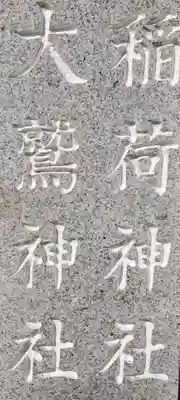 稲荷神社
大鷲神社